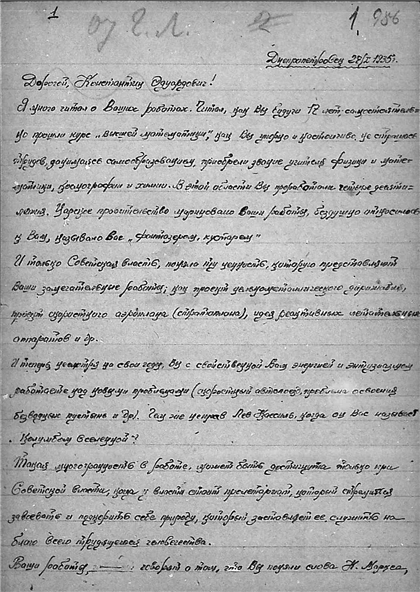 1
1. 986
Днепропетровск 28/I 1935г.
Дорогой, Константин Эдуардович!
Я много читал о Ваших работах. Читал, как Вы будучи 12 лет самостоятельно
прошли курс „высшей математики", как Вы упорно и настойчиво, не страшась
трудов, занимаясь самообразованием, приобрели звание учителя физики и мате-
матики, космографии и химии. В этой области Вы проработали
Царское правительство игнорировало Ваши работы, бездушно относилось
к Вам, называло Вас „фантазером, кустарем"
И только Советская власть, поняла ту ценность, которую представляют
Ваши замечательные работы, как проект цельнометаллического дирижабля,
проект скоростного аэроплана (стратоплана), идея реактивных летательных
аппаратов и др.
И теперь, несмотря на свои годы, Вы с свойственной Вам энергией и энтузиазмом
работаете над новыми проблемами (скоростный автомобиль, проблема освоения
безводных пустынь и др). Так это Лев Кассиль, когда он Вас называет
„Колумбом вселенной"?
Такая многогранность в работе, может быть достигнута только при
Советской власти, когда у власти стоит пролетариат, который стремится
завоевать и подчинить себе природу, который заставляет ее, служить на
благо всего трудящегося человечества.
Ваши работы говорят о том, что Вы поняли слова К. Маркса,